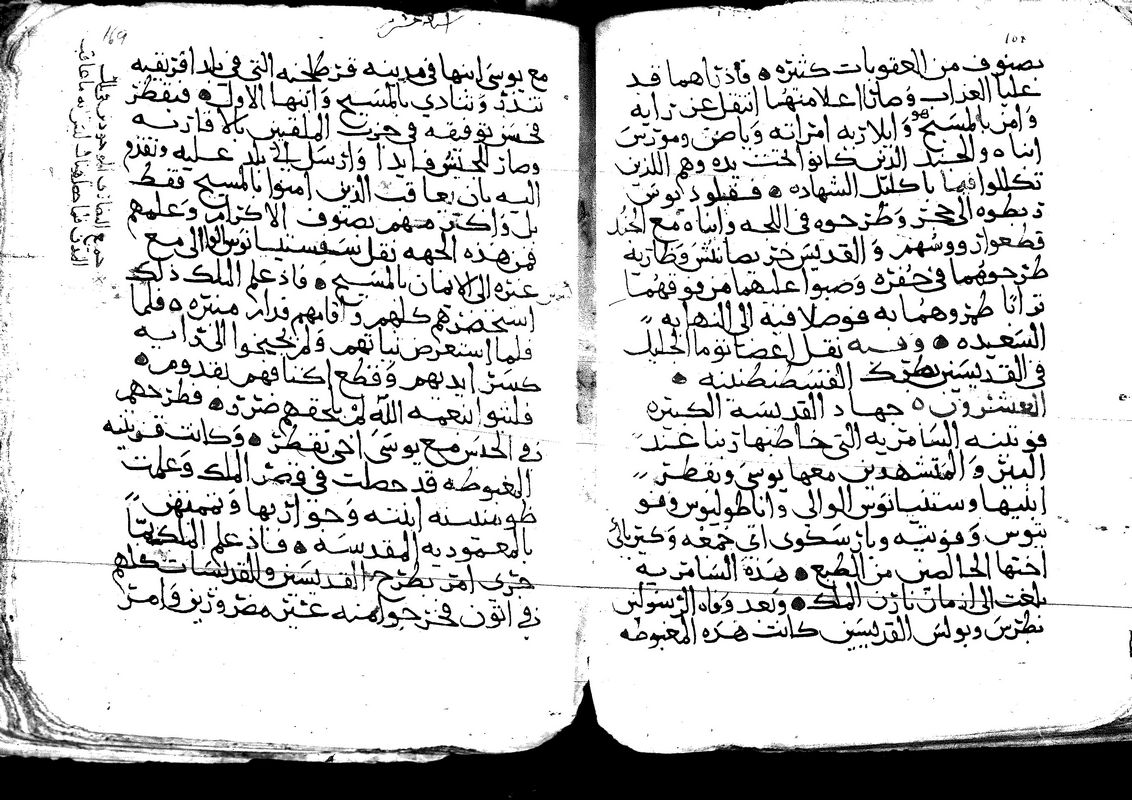 بصنوف من العقوبات كثيره • فاذ راهما قد
غلبا العذاب وصان اعلا منهما انتقل عن رايه
وامن بالمسيح هو وابلاريه امراته وياصن وموريس
ابناه والجند الذين كانوا تحت يده وهم اللذين
تكللوا فيما باكليل الشهاده • فقلوديوس
ربطوه الى حجر وطرحوه في اللجه وابناه مع الجند
قطعوا رووسهم والقديس خريصانثس وطاريه
طرحوهما في حفره وصبوا عليهما من فوقهما
ترابا طمروهما به فوصلا فيه الى النهايه
السعيده • وفيه نقل اعضا توما الجليل
في القديسين بطريرك القسطنطينه •
العشرون • جهاد القديسة الكبيره
فوتينه السامريه التي خاطبها ربنا عند
البير والمتشهدين معها يوسى وبقطر
ابنيها وسبستيانوس الوالي واناطوليوس وفو
تيوس وفوتيه وباراسكوى اي جمعه وكيرياكي
اختها الخالصين من الطبع • هذه السامريه
بلغت الى ازمان نارن الملك • وبعد وفاه الرسولين
بطرس وبولس القديسين كانت هذه المغبوطه
مع يوسى ابنها في مدينه قرطاجنه التي في بلد افريقيه
تنذر وتنادي بالمسيح وابنها الاول • فبقطر
وصار وارسل الى بلد عليه
اليه بان يعاقب الذين امنوا بالمسيح فقط
بل واكثر منهم بصنوف الاكرام وعلمهم
فمن هذه الجهه نقل سبستيانوس الوالي مع
غيره الى الايمان بالمسيح • فاذ علم الملك ذلك
استحضرهم كلهم واقامهم قدام منبره • فلما
فلما استعرض نياتهم ولم يجيحوا الى رايه
كسر ايديهم وقطع اكنافهم بقدوم •
فلبثوا بنعمه الله لم يلحقهم ضرر • فطرحهم
في الحبس مع يوسى اخي بقطر • وكانت فوتينه
المغبوطه قد حصلت في قصر الملك وعلمت
طومنينه ابنته وجواريها وتممتهن
بالمعموديه المقدسه • فاذ علم الملك بما
جرى امر بطرح القديسين والقديسات كلهم
في اتون فخرجوا منه غير مضرورين وامر